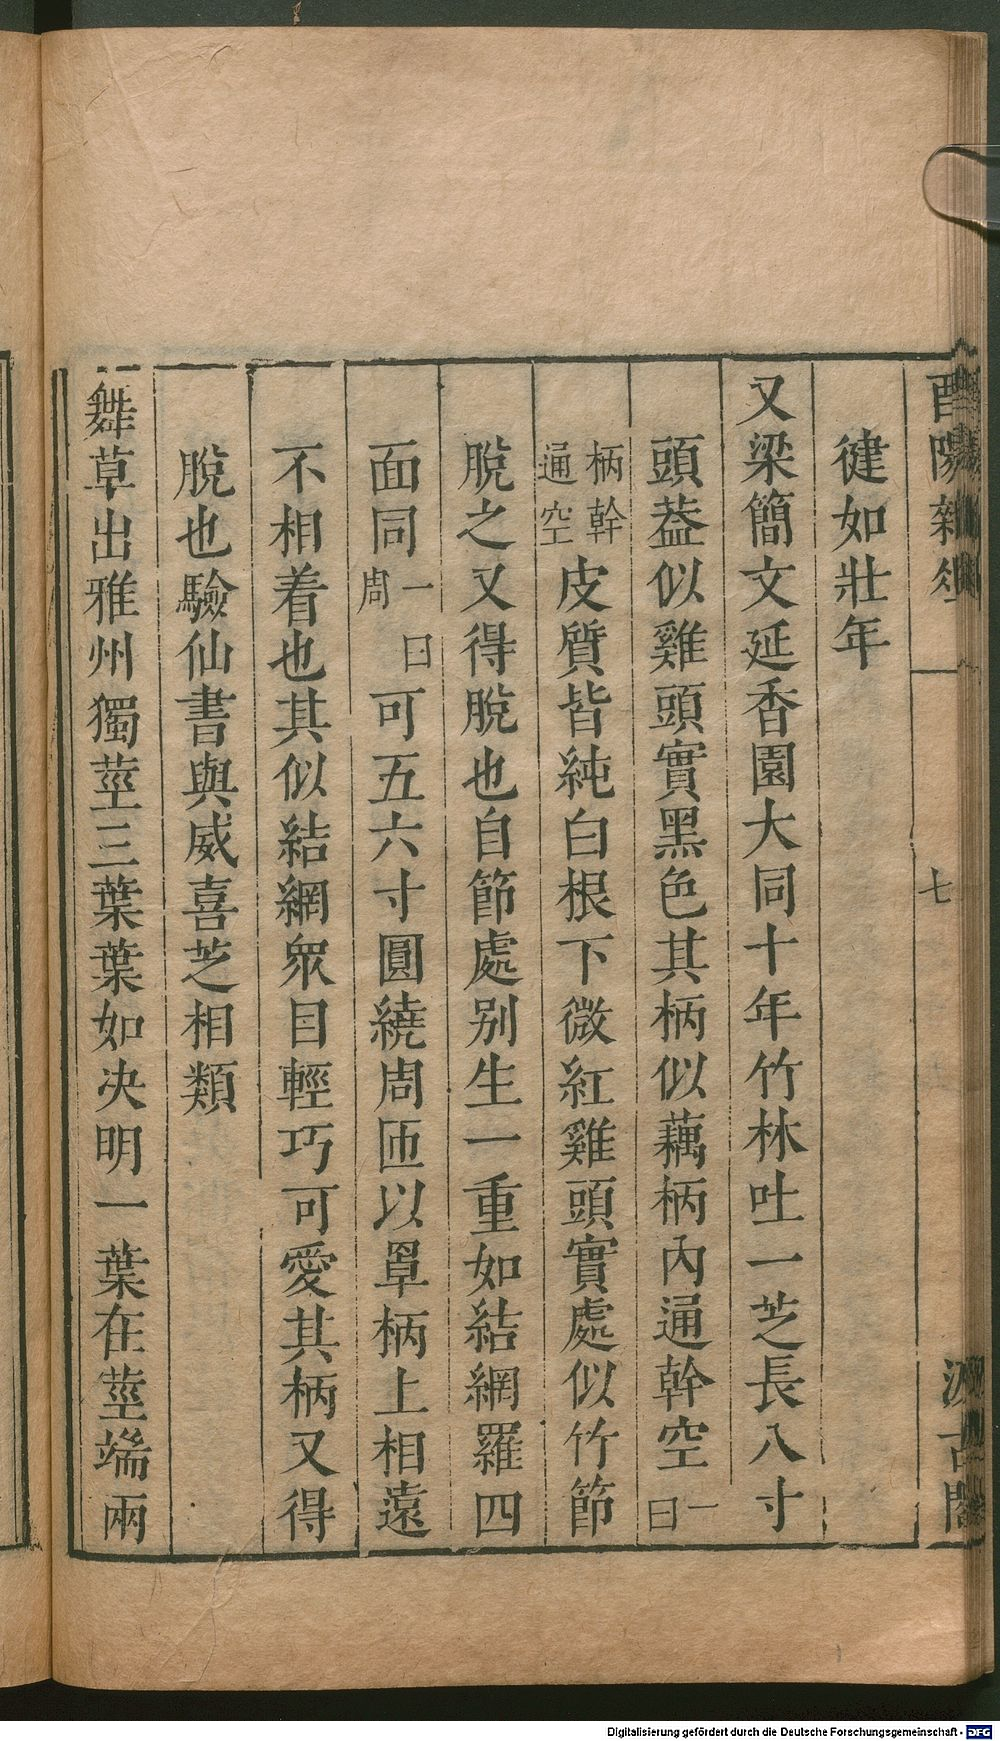 酉陽雜俎
七
汲古閣
健如壯年
又梁簡文延香園大同十年竹林吐一芝長八寸
頭蓋似雞頭實黑色其柄似藕柄內通幹空一曰
柄幹通空皮質皆純白根下微紅雞頭實處似竹節
脫之又得脫也自節處別生一重如結網羅四
面同一曰周可五六寸圓繞周匝以罩柄上相遠
不相着也其似結網眾目輕巧可愛其柄又得
脫也驗仙書與威喜芝相類
舞草出雅州獨莖三葉葉如决明一葉在莖端兩
Digitalisierung gefördert durch die Deutsche Forschungsgemeinschaft - DFG